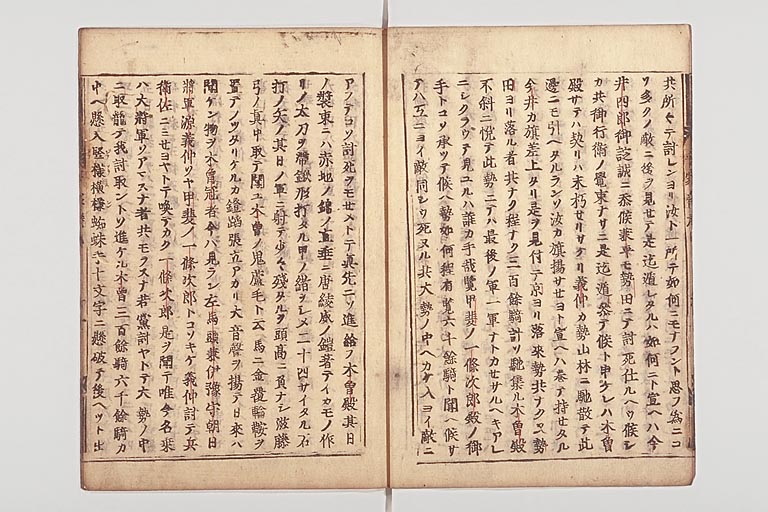 共所ニテ討レンヨリ汝ト一所ニテ如何ニモナラント思フ為ニコ
ソ多クノ敵ニ後ヲ見セテ是迄遁レタルハ如何ニト宣ヘハ今
井四郎御諚誠ニ忝候兼平モ勢田ニテ討死仕ルヘウ候シ
カ共御行衛ノ覺束ナサニ是迄遁参テ候ト申ケレハ木曽
殿サテハ契リハ未朽セサリケリ義仲カ勢山林ニ馳散テ此
邊ニモ引ヘタルラン汝カ旗揚サセヨト宣ヘハ巻テ持セタル
今井カ旗差上タリ是ヲ見付テ京ヨリ落来勢共ナク又勢
田ヨリ落ル者共ナク程ナク三百餘騎計ソ馳集ル木曽殿
不斜ニ悦テ此勢ニテハ最後ノ軍一軍ナトカセサルヘキアレ
ニシクラウテ見ユルハ誰カ手哉覧甲斐ノ一條次郎殿ノ御
手トコソ承ツテ候ヘ勢如何程有覧六千餘騎ト聞ヘ候サ
テハ互ニヨイ敵同シウ死ヌル共大勢ノ中ヘカケ入ヨイ敵ニ
アフテコソ討死ヲモセメトテ真先ニソ進給フ木曽殿其日
ノ装束ニハ赤地ノ錦ノ直垂ニ唐綾威ノ鎧著テイカモノ作
リノ太刀ヲ帯鍬形打タル甲ノ緒ヲシメ二十四サイタル石
打ノ矢ノ其日ノ軍ニ射テ少々残タルヲ頭高ニ負ナシ滋藤
弓ノ真中取テ聞ユル木曽ノ鬼蘆毛ト云馬ニ金覆輪ノ鞍ヲ
置テノツタリケルカ鐙蹈張立アカリ大音聲ヲ揚テ日来ハ
聞ケン物ヲ木曽冠者今ハ見ラン左馬頭兼伊豫守朝日
将軍源義仲ソヤ甲斐ノ一條次郎トコソキケ義仲討テ兵
衛佐ニミセヨヤトテ喚テカク一條次郎是ヲ聞テ唯今名乗
ハ大将軍ソアマスナ者共モラスナ若黨討ヤトテ大勢ノ中
ニ取籠テ我討取ントソ進ケル木曽三百餘騎六千餘騎カ
中ヘ懸入竪様横様蜘蛛手十文字ニ懸破テ後ヘツト出